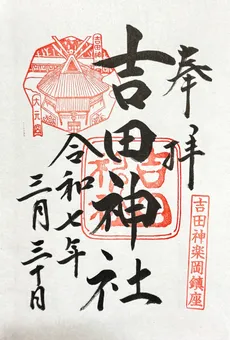 奉拝
吉田神楽岡鎮座
吉田神社
令和七年
三月三十日
吉田神社
大元宮